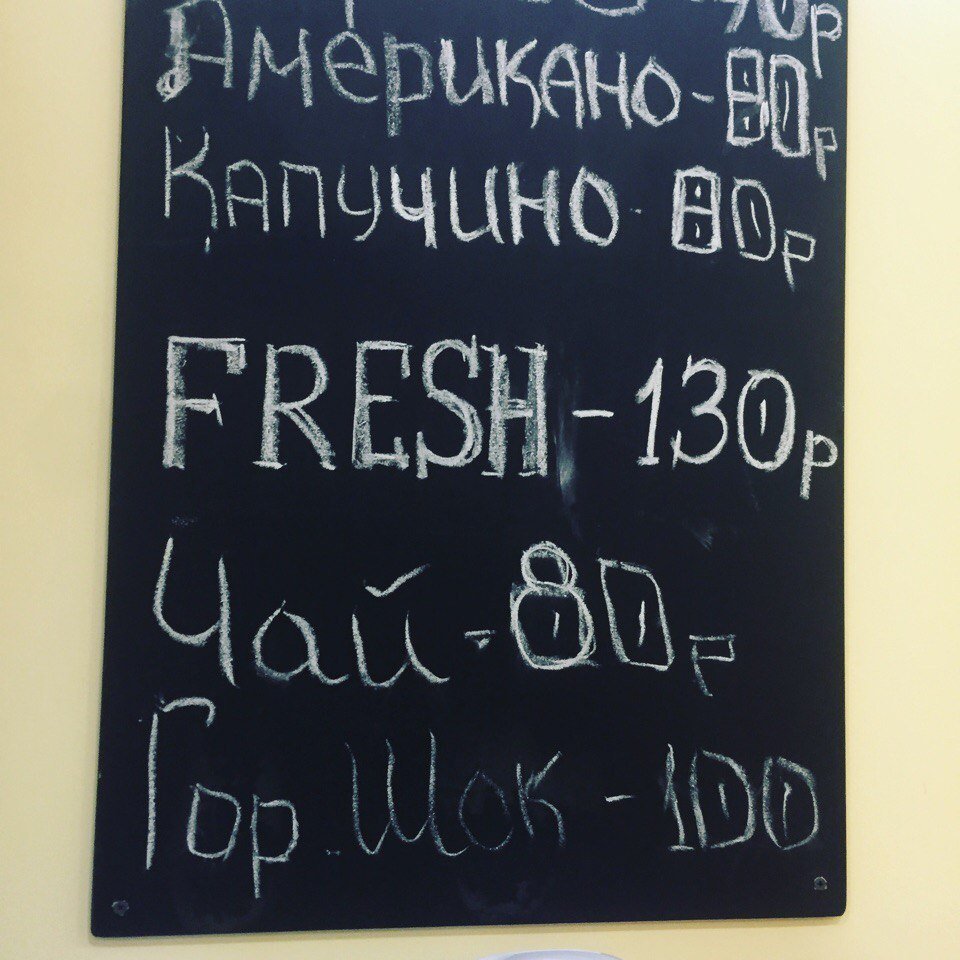 Американо - 80р
Капучино - 80р
FRESH - 130р
Чай - 80р
Гор. Шок - 100